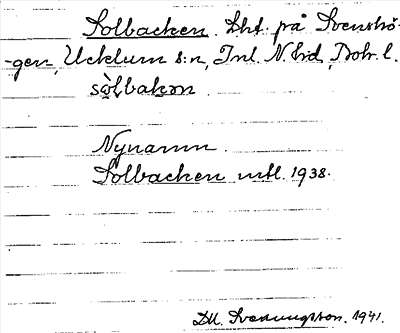 Solbacken. Lht. på Svenshö-
-gen, Ucklum s:n, Inl. N. hd, Boh. l.
sòlbakən
Nynamn.
Solbacken mtl. 1938.
1941.